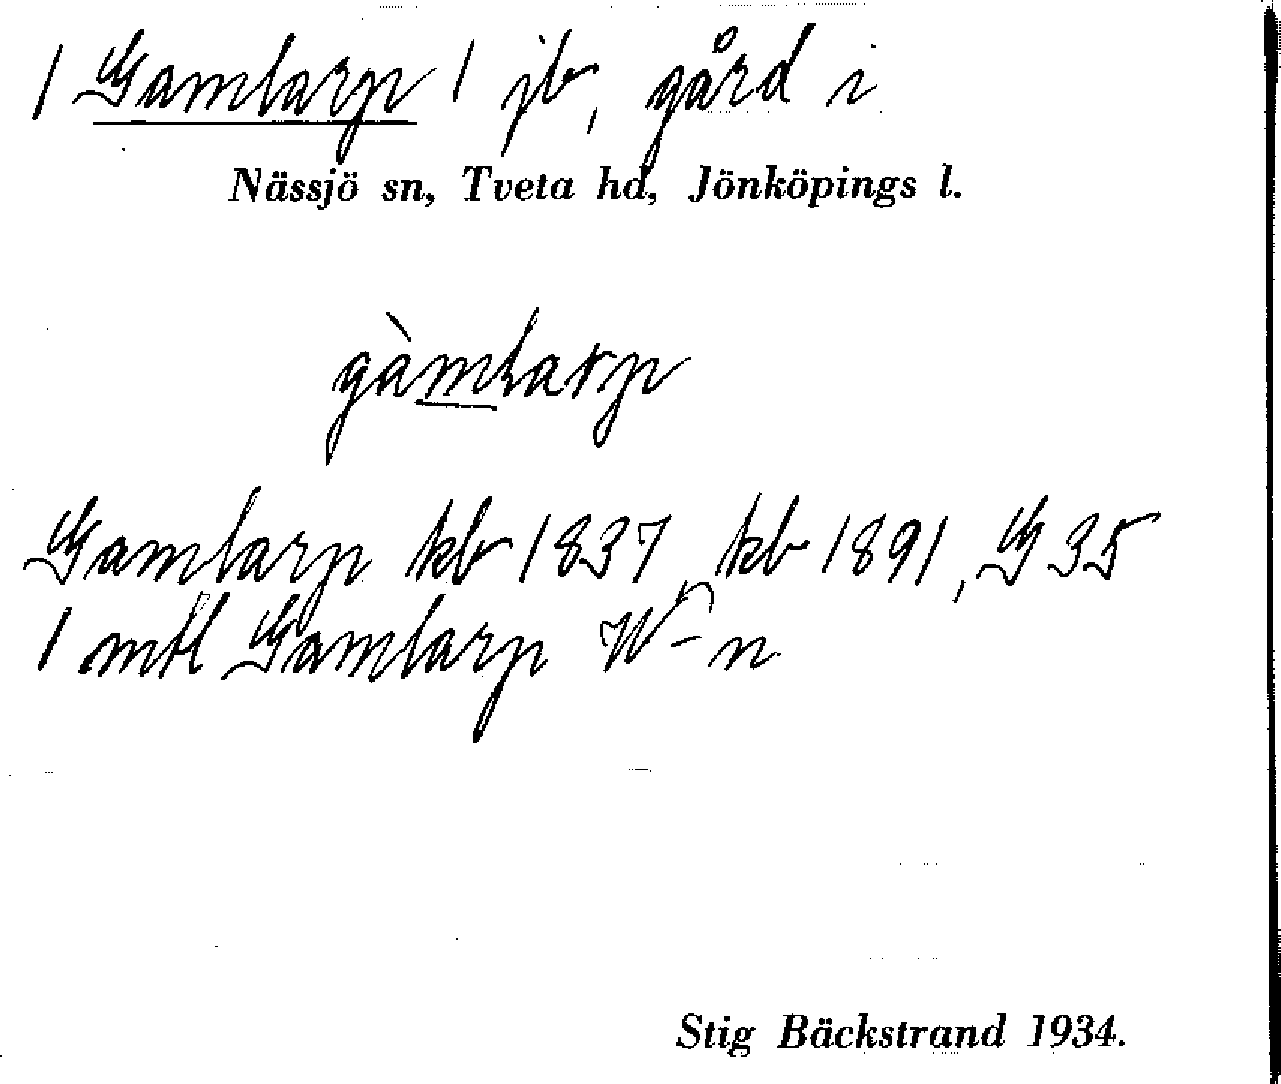 / Gamlarp / jb, gård i
Nässjö sn, Tveta hd, Jönköpings l.
gàmlarp
Gamlarp kb 1837, kb 1891, G 35
1 mtl Gamlarp W-n
Stig Bäckstrand 1934.